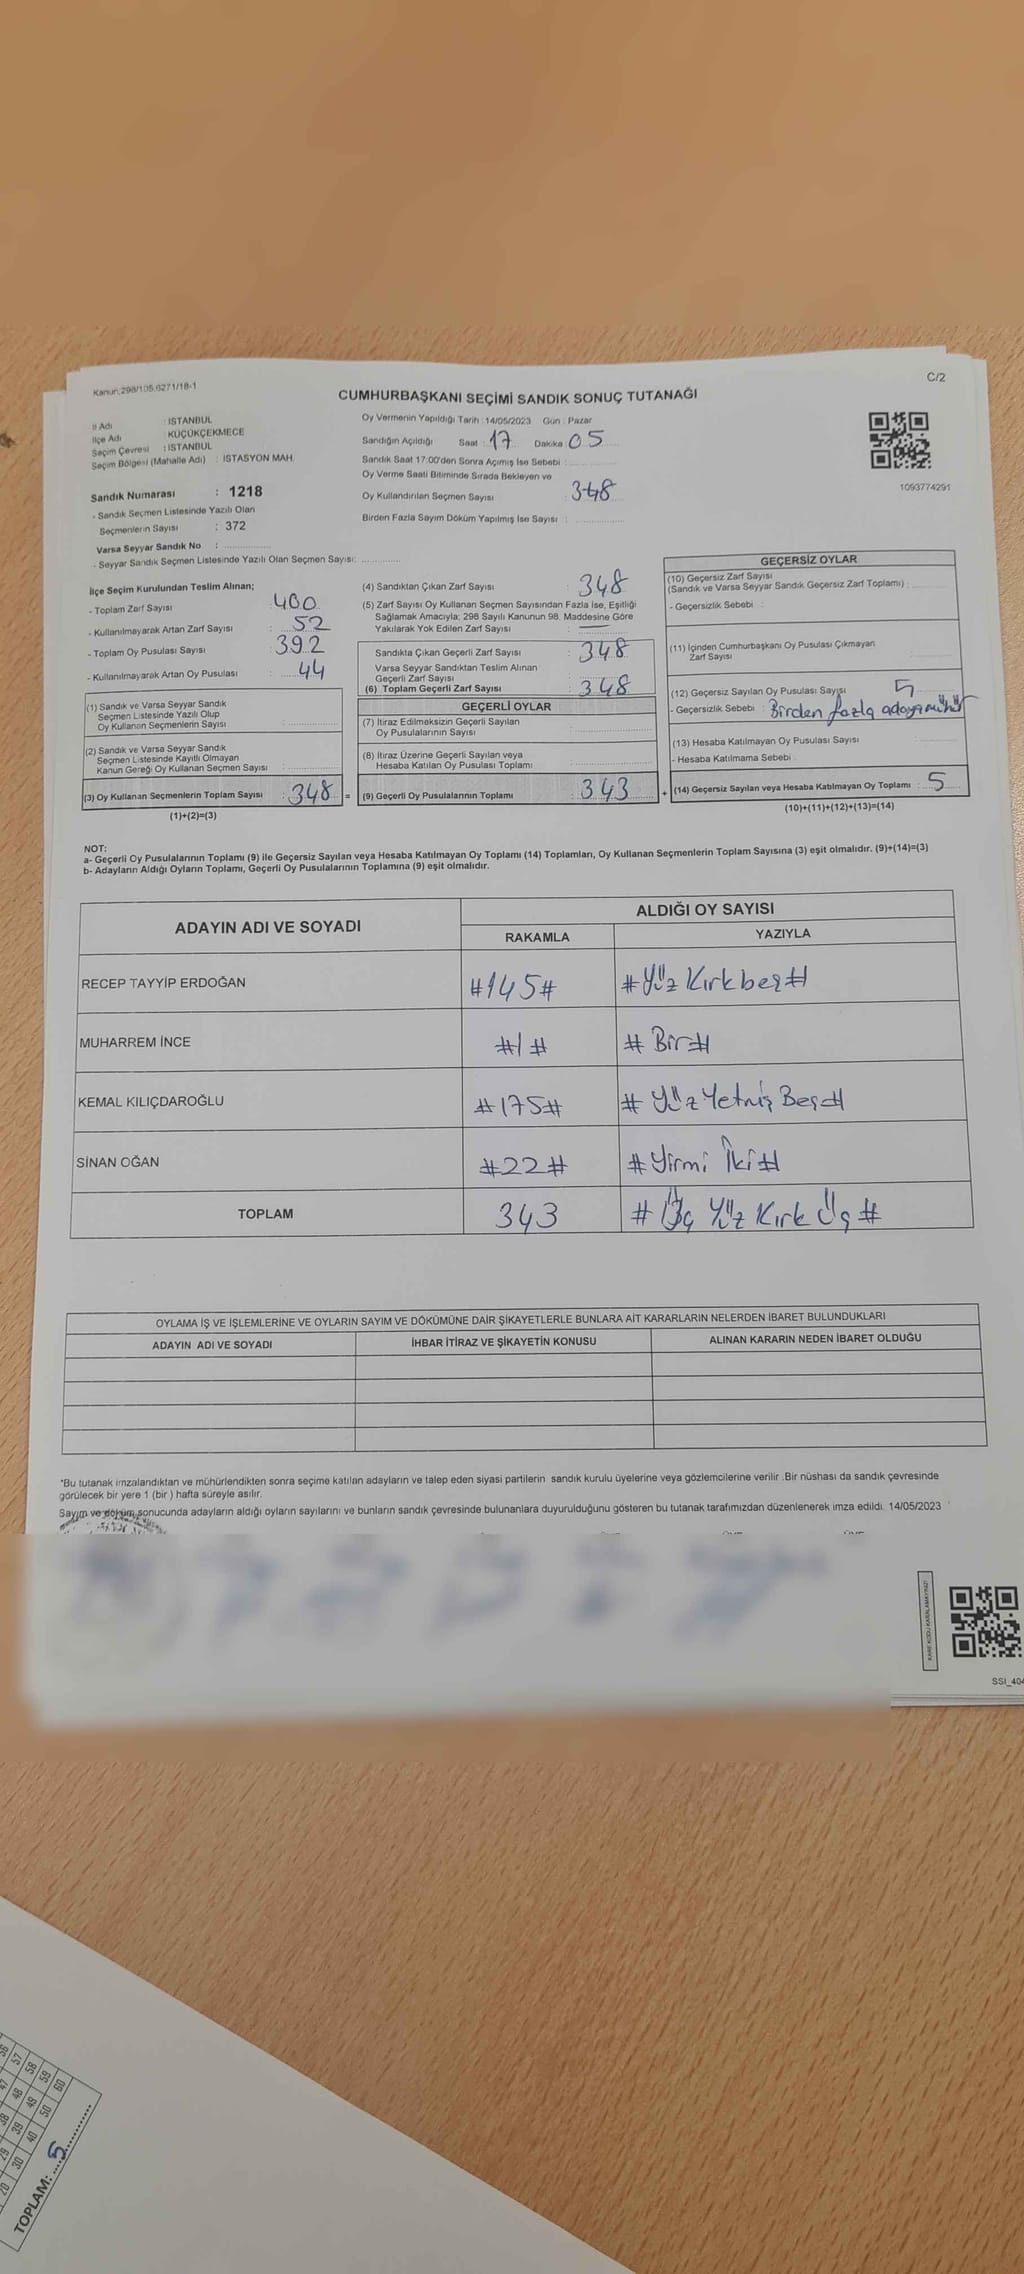 Kanun:298/105,6271/18-1
C/2
CUMHURBAŞKANI SEÇİMİ SANDIK SONUÇ TUTANAĞI
İl Adı : İSTANBUL
İlçe Adı : KÜÇÜKÇEKMECE
Seçim Çevresi : İSTANBUL
Seçim Bölgesi (Mahalle Adı) : İSTASYON MAH.
Sandık Numarası : 1218
- Sandık Seçmen Listesinde Yazılı Olan
Seçmenlerin Sayısı : 372
Varsa Seyyar Sandık No : ...............
- Seyyar Sandık Seçmen Listesinde Yazılı Olan Seçmen Sayısı: ............
Oy Vermenin Yapıldığı Tarih : 14/05/2023 Gün : Pazar
Sandığın Açıldığı Saat : 17 Dakika : 05
Sandık Saat 17:00'den Sonra Açımış İse Sebebi :
Oy Verme Saati Bitiminde Sırada Bekleyen ve
Oy Kullandırılan Seçmen Sayısı 348
Birden Fazla Sayım Döküm Yapılmış İse Sayısı : ...............
1093774291
İlçe Seçim Kurulundan Teslim Alınan;
- Toplam Zarf Sayısı : 400
- Kullanılmayarak Artan Zarf Sayısı : 52
- Toplam Oy Pusulası Sayısı : 392
- Kullanılmayarak Artan Oy Pusulası : 44
(1) Sandık ve Varsa Seyyar Sandık
Seçmen Listesinde Yazılı Olup
Oy Kullanan Seçmenlerin Sayısı : ...............
(2) Sandık ve Varsa Seyyar Sandık
Seçmen Listesinde Kayıtlı Olmayan
Kanun Gereği Oy Kullanan Seçmen Sayısı : ...............
(3) Oy Kullanan Seçmenlerin Toplam Sayısı : 348 =
(1)+(2)=(3)
(4) Sandıktan Çıkan Zarf Sayısı : 348
(5) Zarf Sayısı Oy Kullanan Seçmen Sayısından Fazla İse, Eşitliği
Sağlamak Amacıyla; 298 Sayılı Kanunun 98. Maddesine Göre
Yakılarak Yok Edilen Zarf Sayısı : —
Sandıkta Çıkan Geçerli Zarf Sayısı : 348
Varsa Seyyar Sandıktan Teslim Alınan
Geçerli Zarf Sayısı
(6) Toplam Geçerli Zarf Sayısı : 348
GEÇERLİ OYLAR
(7) İtiraz Edilmeksizin Geçerli Sayılan
Oy Pusulalarının Sayısı : ...............
(8) İtiraz Üzerine Geçerli Sayılan veya
Hesaba Katılan Oy Pusulası Toplamı : ...............
(9) Geçerli Oy Pusulalarının Toplamı : 343 +
GEÇERSİZ OYLAR
(10) Geçersiz Zarf Sayısı
(Sandık ve Varsa Seyyar Sandık Geçersiz Zarf Toplamı) :
- Geçersizlik Sebebi :
(11) İçinden Cumhurbaşkanı Oy Pusulası Çıkmayan
Zarf Sayısı
(12) Geçersiz Sayılan Oy Pusulası Sayısı 5
- Geçersizlik Sebebi : Birden fazla adaya mühür
(13) Hesaba Katılmayan Oy Pusulası Sayısı
- Hesaba Katılmama Sebebi :
(14) Geçersiz Sayılan veya Hesaba Katılmayan Oy Toplamı : 5
(10)+(11)+(12)+(13)=(14)
NOT:
a- Geçerli Oy Pusulalarının Toplamı (9) ile Geçersiz Sayılan veya Hesaba Katılmayan Oy Toplamı (14) Toplamları, Oy Kullanan Seçmenlerin Toplam Sayısına (3) eşit olmalıdır. (9)+(14)=(3)
b- Adayların Aldığı Oyların Toplamı, Geçerli Oy Pusulalarının Toplamına (9) eşit olmalıdır.
ADAYIN ADI VE SOYADI
ALDIĞI OY SAYISI
RAKAMLA YAZIYLA
RECEP TAYYİP ERDOĞAN #145# #Yüz Kırkbeş#
MUHARREM İNCE #1# # Bir#
KEMAL KILIÇDAROĞLU #175# # Yüz Yetmiş Beş#
SİNAN OĞAN #22# # Yirmi İki#
TOPLAM 343 # Üç Yüz Kırk Üç #
OYLAMA İŞ VE İŞLEMLERİNE VE OYLARIN SAYIM VE DÖKÜMÜNE DAİR ŞİKAYETLERLE BUNLARA AİT KARARLARIN NELERDEN İBARET BULUNDUKLARI
ADAYIN ADI VE SOYADI İHBAR İTİRAZ VE ŞİKAYETİN KONUSU ALINAN KARARIN NEDEN İBARET OLDUĞU
*Bu tutanak imzalandıktan ve mühürlendikten sonra seçime katılan adayların ve talep eden siyasi partilerin sandık kurulu üyelerine veya gözlemcilerine verilir .Bir nüshası da sandık çevresinde
görülecek bir yere 1 (bir ) hafta süreyle asılır.
Sayım ve döküm sonucunda adayların aldığı oyların sayılarını ve bunların sandık çevresinde bulunanlara duyurulduğunu gösteren bu tutanak tarafımızdan düzenlenerek imza edildi. 14/05/2023
KARE KODU KARALAMAYINIZ!
SSI_404
56 57 58 59 60
47 48 49 50
38 39 40
29 30
20
TOPLAM: 5